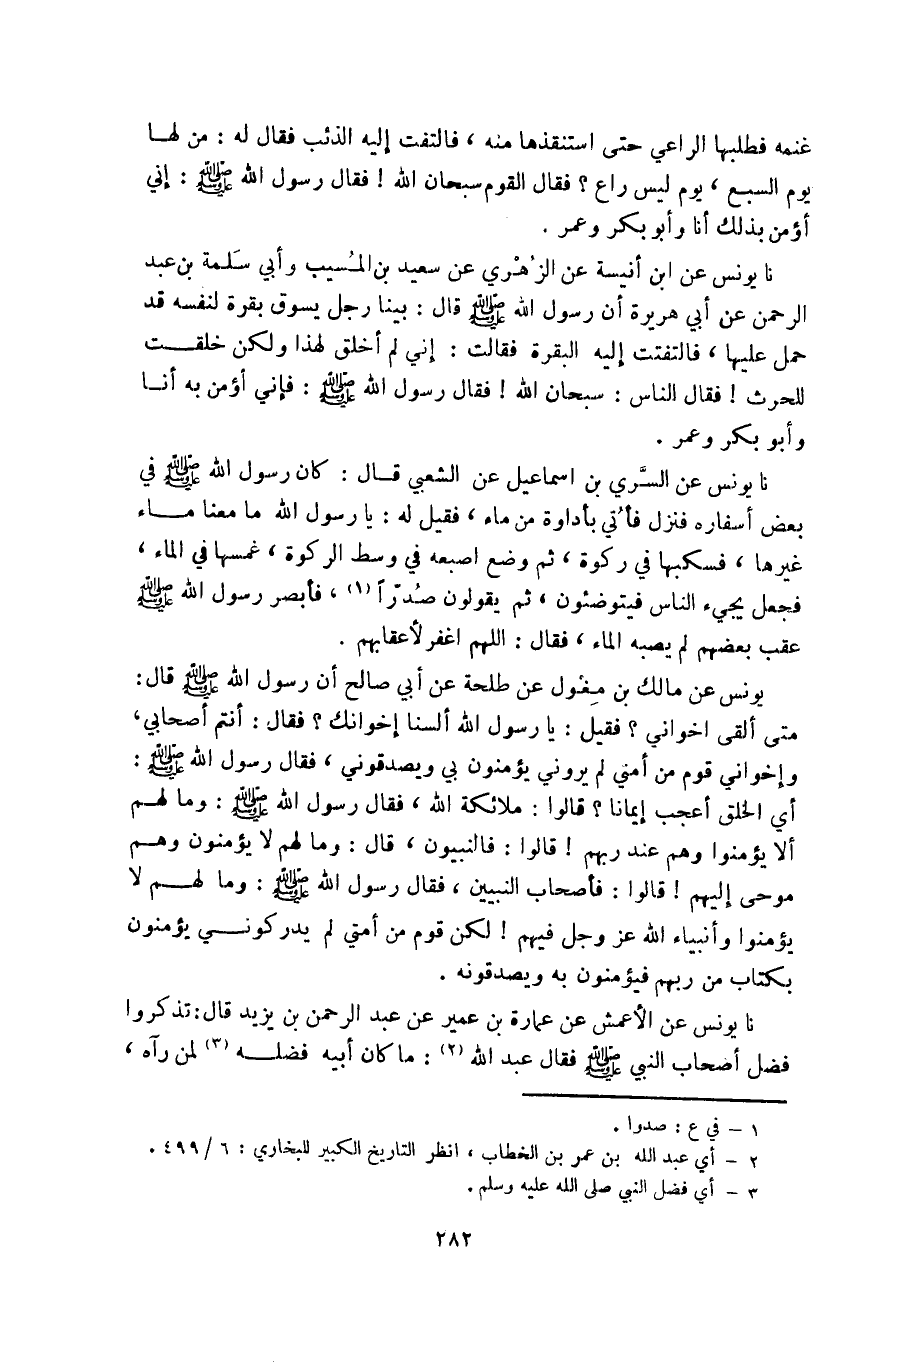 غنمه فطلبها الراعي حتى استنقذها منه ، فالتفت إليه الذئب فقال له : من لهـا
يوم السبع ، يوم ليس راع ؟ فقال القوم سبحان الله ! فقال رسول الله ﷺ : إني
أؤمن بذلك أنا وأبو بكر وعمر .
نا يونس عن ابن أنيسة عن الزهْري عن سعيد بن المُسيب وأبي سَلَمة بن عبد
الرحمن عن أبي هريرة أن رسول الله ﷺ قال : بينا رجل يسوق بقرة لنفسه قد
حمل عليها ، فالتفتت إليه البقرة فقالت : إني لم أخلق لهذا ولكن خلقـــت
للحرث ! فقال الناس : سبحان الله ! فقال رسول الله ﷺ : فإني أؤمن به أنــا
وأبو بكر وعمر .
نا يونس عن السَّري بن اسماعيل عن الشعبي قــال : كان رسول الله ﷺ في
بعض أسفاره فنزل فأُتي بأداوة من ماء ، فقيل له : يا رسول الله ما معنا مـــاء
غيرها ، فسكبها في ركوة ، ثم وضع اصبعه في وسط الركوة ، غمسها في الماء ،
فجعل يجيء الناس فيتوضئون ، ثم يقولون صُدرّاً (١) ، فأبصر رسول الله ﷺ
عقب بعضهم لم يصبه الماء ، فقال : اللهم اغفر لأعقابهم .
يونس عن مالك بن مِغْول عن طلحة عن أبي صالح أن رسول الله ﷺ قال :
متى ألقى اخواني ؟ فقيل : يا رسول الله ألسنا إخوانك ؟ فقال : أنتم أصحابي ،
وإخواني قوم من أمتي لم يروني يؤمنون بي ويصدقوني ، فقال رسول الله ﷺ :
أي الخلق أعجب إيمانا ؟ قالوا : ملائكة الله ، فقال رسول الله ﷺ : وما لهـم
ألا يؤمنوا وهم عند ربهم ! قالوا : فالنبيون ، قال : وما لهم لا يؤمنون وهـم
موحى إليهم ! قالوا : فأصحاب النبيين ، فقال رسول الله ﷺ : وما لهــم لا
يؤمنوا وأنبياء الله عز وجل فيهم ! لكن قوم من أمتي لم يدركونــي يؤمنون
بكتاب من ربهم فيؤمنون به ويصدقونه .
نا يونس عن الأعمش عن عمارة بن عمير عن عبد الرحمن بن يزيد قال : تذكروا
فضل أصحاب النبي ﷺ فقال عبد الله (٢) : ما كان أبيه فضلــه (٣) لمن رآه ،
١ – في ع : صدوا .
٢ – أي عبد الله بن عمر بن الخطاب ، انظر التاريخ الكبير للبخاري : ٦ / ٤٩٩ .
٣ – أي فضل النبي صلى الله عليه وسلم .
٢٨٢